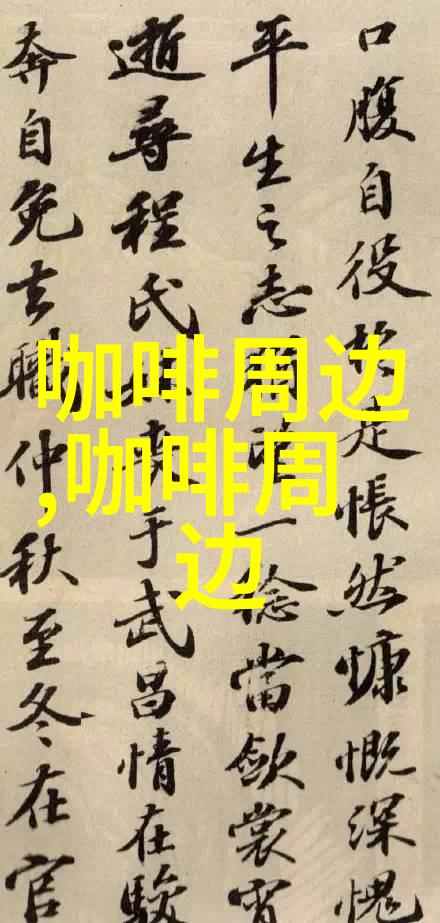 口腹自役於是悵然慷慨深愧
平生之志猶望一稔當斂裳宵
逝尋程氏妹喪于武昌情在駿
奔自免去職仲秋至冬在官
咖啡周边
,咖啡周
边